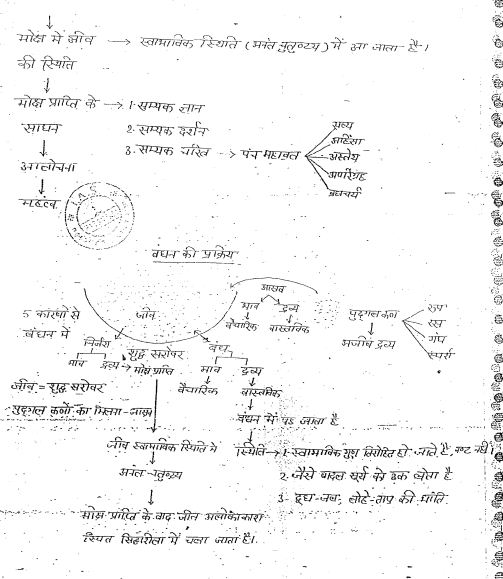 मोक्ष में जीव → स्वाभाविक स्थिति (अनंत चतुष्टय) में आ जाता है।
की स्थिति
मोक्ष प्राप्ति के → 1. सम्यक ज्ञान
साधन
2. सम्यक दर्शन
3. सम्यक चरित्र → पंच महाव्रत
सत्य
अहिंसा
अस्तेय
अपरिग्रह
ब्रह्मचर्य
आलोचना
महत्व
I.A.S.
बंधन की प्रक्रिया
आस्रव
भाव द्रव्य
वैचारिक वास्तविक
5 कारणों से
बंधन में
जीव
निर्जरा
भाव द्रव्य → मोक्ष प्राप्ति
शुद्ध सरोवर
बंध
भाव द्रव्य
वैचारिक वास्तविक
पुद्गल कण
अजीव द्रव्य
रूप
रस
गंध
स्पर्श
जीव = शुद्ध सरोवर
पुद्गल कणों का मिलना -
बंधन में पड़ जाता है
जीव स्वाभाविक स्थिति में
अनंत चतुष्टय
मोक्ष प्राप्ति के बाद जीव अलोकाकाश
स्थित सिद्धशीला में चला जाता है।
स्थिति → 1. स्वाभाविक गुण तिरोहित हो जाते है, नष्ट नहीं।
2. जैसे बादल सूर्य को ढक लेता है
3. दूध-जल, लोहे-ताप की भांति